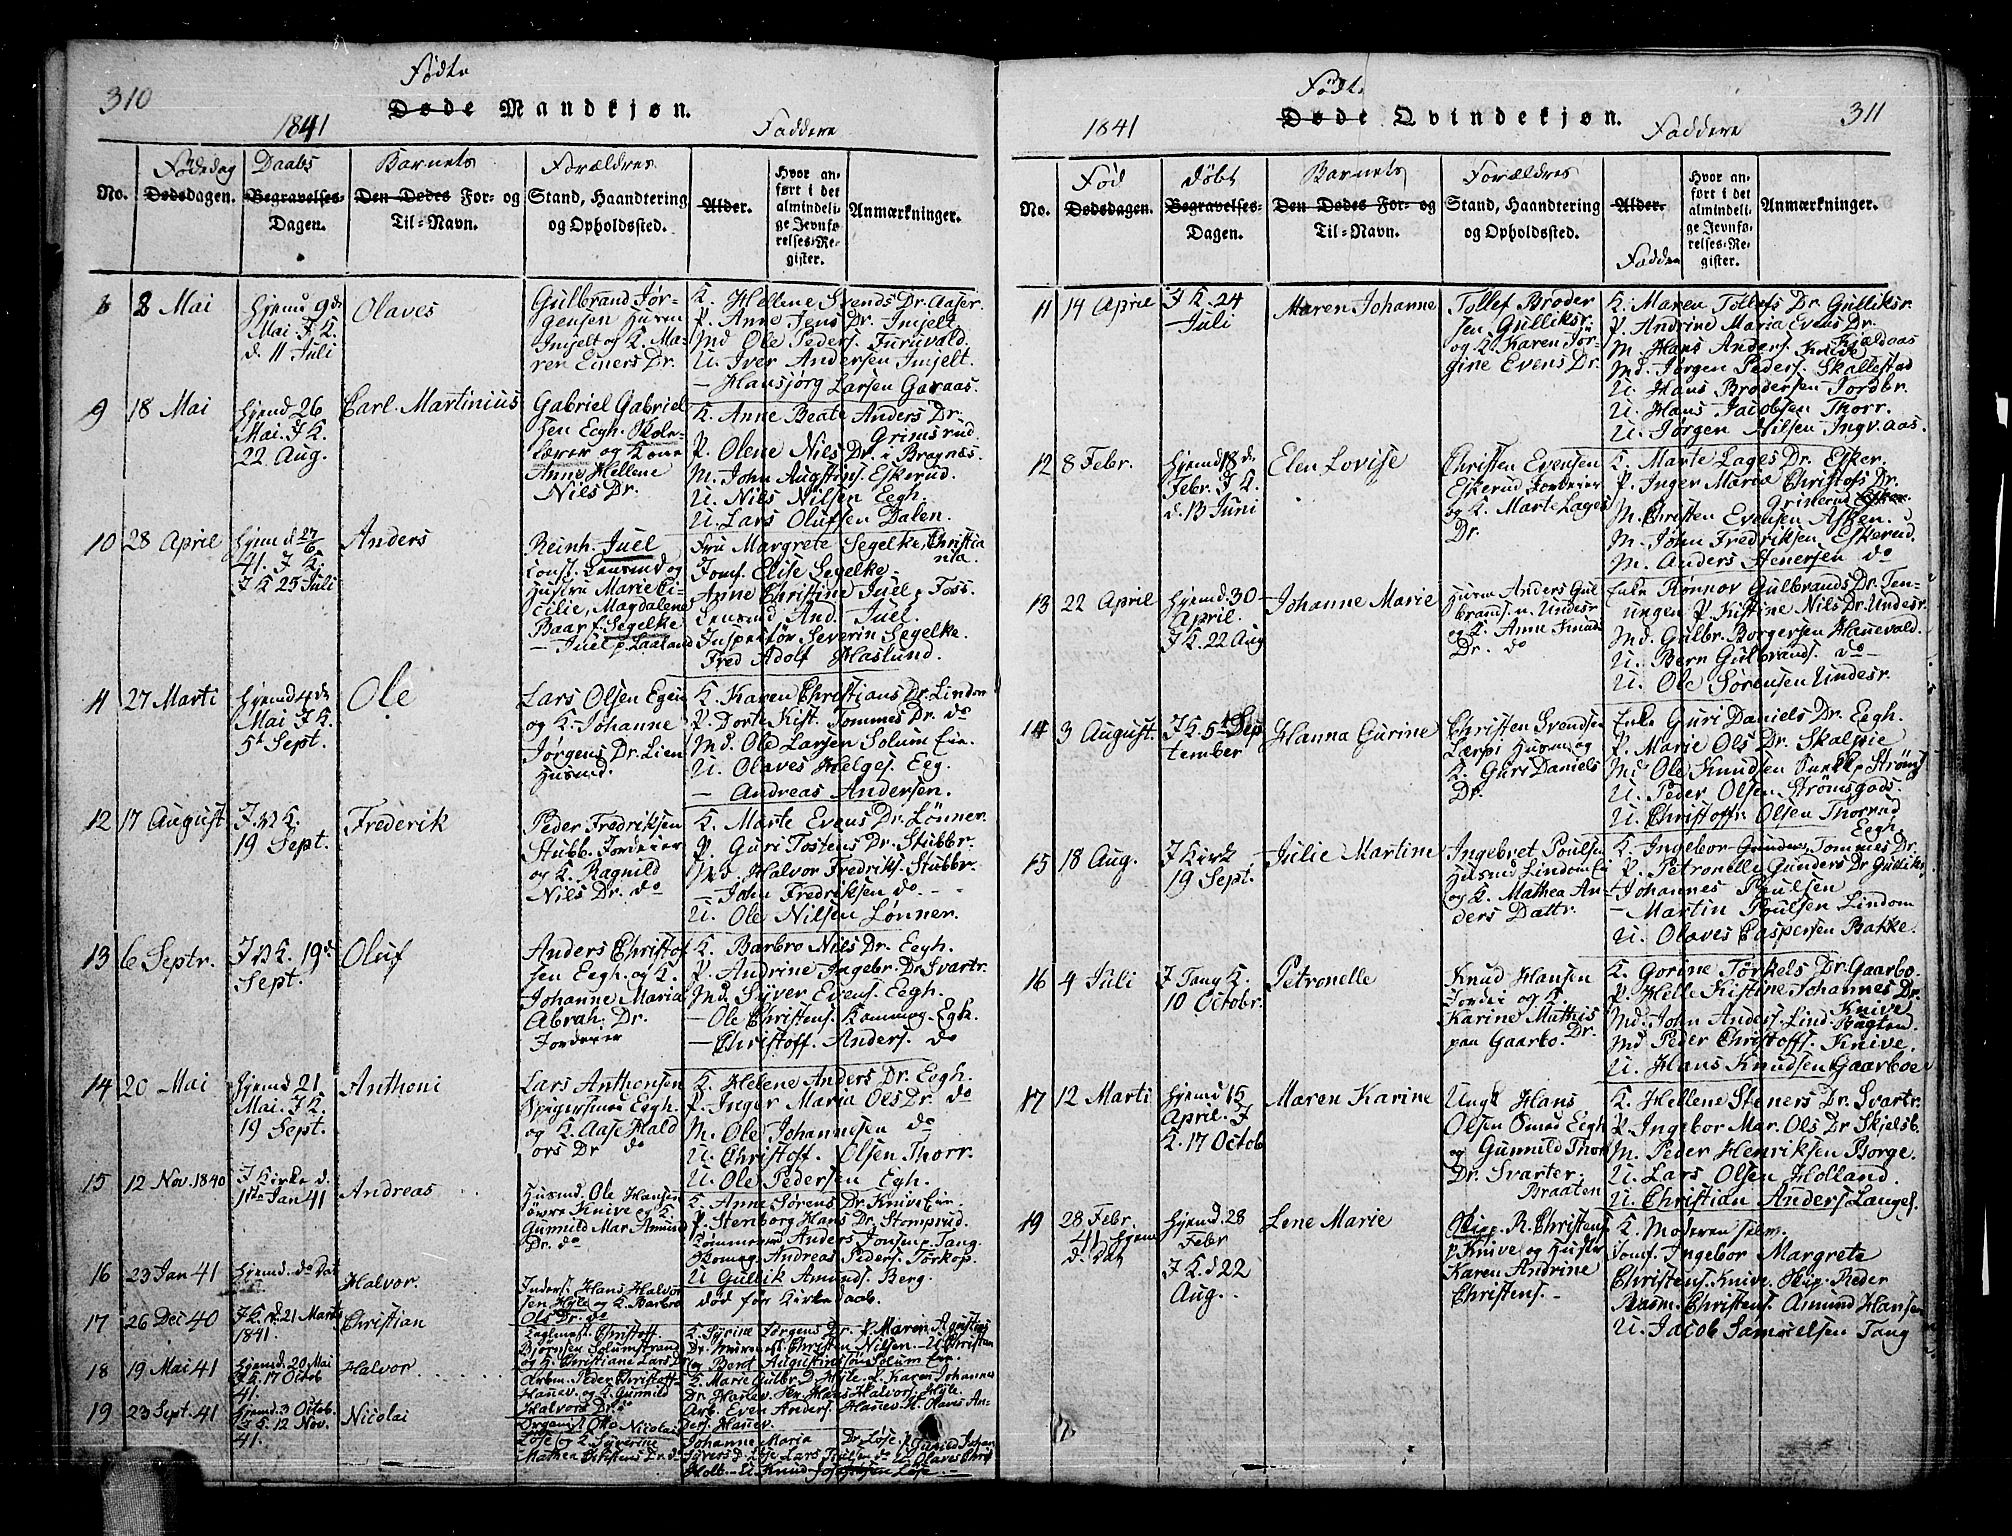 310
Fødte
Døde Mandkjøn.
1841
Faddere
No.
Fødedag
Dødsdagen.
Daabs
Begravelses-
Dagen.
Barnets
Den Dødes For- og
Til-Navn.
Forældres
Stand, Haandtering
og Opholdssted.
Alder.
Hvor an-
ført i det
almindeli-
ge Jevnfø-
relses-Re-
gister.
Anmærkninger.
8
8 Mai
Hjemd 9de
Mai. I K.
d. 11 Juli
Olaves
Gulbrand Jør-
gensen Huren
Imjelt og K. Ma-
ren Einers Dr.
K. Hellene Svends Dr. Aaser
P. Anne Jens Dr. Imjelt
Md Ole Peders. Furuvald.
U. Iver Andersen Imjelt.
— Hansjörg Larsen Garaas.
9
18 Mai
Hjemd. 26
Mai. I K.
22 Aug.
Carl Martinius
Gabriel Gabriel-
sen Eegh. Skole-
lærer og Kone
Anne Hellene
Nils Dr.
K. Anne Beate Anders Dr.
Grimsrud
P. Olene Nils Dr. i Bragnæs.
M. John Augstins. Eskerud.
U. Nils Nilsen Eegh.
U. Lars Olufsen Dalen.
10
28 April
Hjemd 27/6
41. I K.
I K 25 Juli
Anders
Reinh. Juel
const. Lensmd og
Hustru Marie Ce-
cilie, Magdalene
Baar f. Segelke
— Juel p. Laaland
Fru Margrete Segelke, Christia
nia.
Jomf. Elise Segelke
Anne Christine Juel p. Foss.
Lensmd And. Juel.
Inspektör Severin Segelke.
Fred Adolf Haslund.
11
27 Marti
Hjemd 4de
Mai I K.
5t Sept.
Ole
Lars Olsen Egen
og K. Johanne
Jörgens Dr. Lien
Husmd.
K. Karen Christians Dr. Lindom
P. Dorte Kist. Tommes Dr. do
Md. Ole Larsen Solum Eie.
U. Olaves Helges. Eeg.
— Andreas Andersen.
12
17 August
I K.
19 Sept.
Frederik
Peder Fredriksen
Stubb. Jordeier
og K. Ragnild
Nils Dr. do
K. Marte Evens Dr. Lönner.
P. Guri Tostens Dr. Stubbr.
Md. Halvor Fredriks. Stubbr.
— John Fredriksen do.
U. Ole Nilsen Lönner.
13
6 Septr.
I K. 19de
Sept.
Oluf
Anders Christof
sen Eegh. og K.
Johanne Maria
Abrah. Dr.
Jordeier
K. Barbro Nils Dr. Eegh.
P. Andrine Ingebr. Dr. Svartr.
Md. Syver Evens. Eegh.
— Ole Christens. Kommog. Egh.
— Christoff. Anders. do
14
20 Mai
Hjemd 21
Mai. I K.
19 Sept.
Anthoni
Lars Anthonsen
Spigersmed Eegh.
og K. Aase Hald
ors Dr do
K. Helene Anders Dr. Eegh.
P. Inger Maria Ols Dr. do
M. Ole Johannesen do
U. Christoff. Olsen Thorr.
U. Ole Pedersen Egh.
15
12 Nov. 1840
I Kirke d.
1te Jan 41
Andreas
Husmd. Ole Hansen
övre Knive og K.
Gunnild Mar. Amund
Dr. do
K. Anne Sörens Dr. Knive Eie.
P. Stenborg Hans Dr. Stomprud.
Tömmermd Anders Jonsen p. Tang.
Skomag. Andreas Peders. Torkop.
U Gullik Amunds. Berg.
16
23 Jan 41
Hjemd. do Dat
Halvor.
Inders. Hans Halvor
sen Hyle og K. Barbro
Ols Dr. do
död för Kirkedaab.
17
26 Dec 40
I K. d. 21 Marts
1841.
Christian
Christoff.
Björnsen Solumstrand
og K. Christiane Lars Dr
K. Syrine Jörgens Dr. P. Maren Agustins
Dr. Christen Nilsen. U. Christen
og Bent Augustinsön Solum Eie.
18
19 Mai 41
Hjemd. 20 Mai
I K. 17 Octob
41.
Halvor
Arbm. Peder Christoff-
Hanev. og K. Gunnild
Halvors Dr. do
K. Marie Gulbr. D. Hyle. P. Karen Johanne
Dr. Hanev. Hans Halvors. Hyle.
Arb. Even Anders. Hanev. H. Hans An-
ders. Hanev.
19
23 Sept. 41
Hjemd. 3 Octob.
I K. 12 Nov.
41.
Nicolai
Organist Otto Nicolai
Löse & K. Syverine
Mathea Kistens Dr. do
Johanne Maria Dr. Löse
Syvers D. Löse Lars do U. Olaves Chris
Holb. — U. Knud Josephsen Löse.
311
Fødte
Døde Qvindekjøn.
1841
Faddere
No.
Fød
Dødsdagen.
døbt
Begravelses-
Dagen.
Barnets
Den Dødes For- og
Til-Navn.
Forældres
Stand, Haandtering
og Opholdssted.
Alder.
Faddere
Hvor an-
ført i det
almindeli-
ge Jevnfø-
relses-Re-
gister.
Anmærkninger.
11
14 April
I K. 24
Juli
Maren Johanne
Tollef Broder
sen Gulliksr.
og K. Karen Jör-
gine Evens Dr.
K. Maren Tollefs Dr. Gulliksr.
P. Andrine Maria Evens Dr.
Kjældaas
M. Hans Anders. Knive
Md. Jörgen Peders. Skallestad
U. Hans Brodersen Jordbr.
U. Hans Jacobsen Thorr.
U. Jörgen Nilsen Ingv.aas.
12
8 Febr.
Hjemd 18 de
Febr. I K.
d. 13 Juni
Elen Lovise
Christen Evensen
Eskerud Jordeier
og K. Marte Lages
Dr.
K. Marte Lages Dr. Esker.
P. Inger Maria Christofs Dr.
Griserud
M. Christen Evensen Asken.
M. John Fredriksen Eskerud.
M. Anders Stenersen do
13
22 April
Hjemd. 30
April.
I K. 22 Aug
Johanne Marie
Huren Anders Gul
brands. n. Undesr
og K. Anne Knuds
Dr. do
Enke Rönnov Gulbrands Dr. Ten-
ungen P. Kistine Nils Dr. Undesr.
Md. Gulbr. Borgersen Hanevald.
U. Bern Gulbrands. do
U. Ole Sörensen Undesr.
14
3 August.
I K. 5te Sep
tember
Hanna Gurine
Christen Svendsen
Lærpi Husm. og
K. Guri Daniels
Dr.
Enke Guri Daniels Dr. Eegh.
P. Marie Ols Dr. Skalpie
Md Ole Knudsen p. Ströms
U. Peder Olsen Strömsgods.
U. Christoffr. Olsen Thorrud
Eegh.
15
18 Aug.
I Kirk
19 Sept.
Julie Martine
Ingebret Poulsen
Husmd Lindom Ei
og K. Mathea An-
ders Dattr.
K. Ingebor Tommes Dr.
P. Petronelle Gunders Dr Gulliks.
— Johannes Poulsen
— Martin Poulsen Lindom
U. Olaves Caspersen Bakke.
16
4 Juli
I Tang K.
10 Octobr.
Petronelle
Knud Hansen
Jordei og K.
Karine Mathis
Dr.
paa Gaarbo.
K. Gorine Törkels Dr. Gaarbo.
P. Helle Kistine Johannes Dr.
Knive
Md. John Anders. Lind. Bagten
Md Peder Christoffs. Knive.
U. Hans Knudsen Gaarboe
17
12 Marti
Hjemd 15
April. I
K. 17 Octob
Maren Karine
Ungk Hans
Olsen Smed Eegh
og Gunnild Thor
Dr. Svarter.
Braaten
K. Hellene Steners Dr. Svartr.
P. Ingebor Mar. Ols Dr Skjelsb.
M. Peder Henriksen Borge.
U. Lars Olsen Holland.
U. Christian Anders. Langes.
19
28 Febr.
41 Hjem
d. Dat
Hjemd. 28
Febr
I K. d 22
Aug.
Lene Marie
Skipp. R. Christens.
p. Knive og Hustr
Karen Andrine
Christens.
K. Moderen selv.
Jomf. Ingebor Margrete
Christens. Knive. Skip. Peder
Rasm. Christens. Amund Hansen
U. Jacob Samuelsen Tang